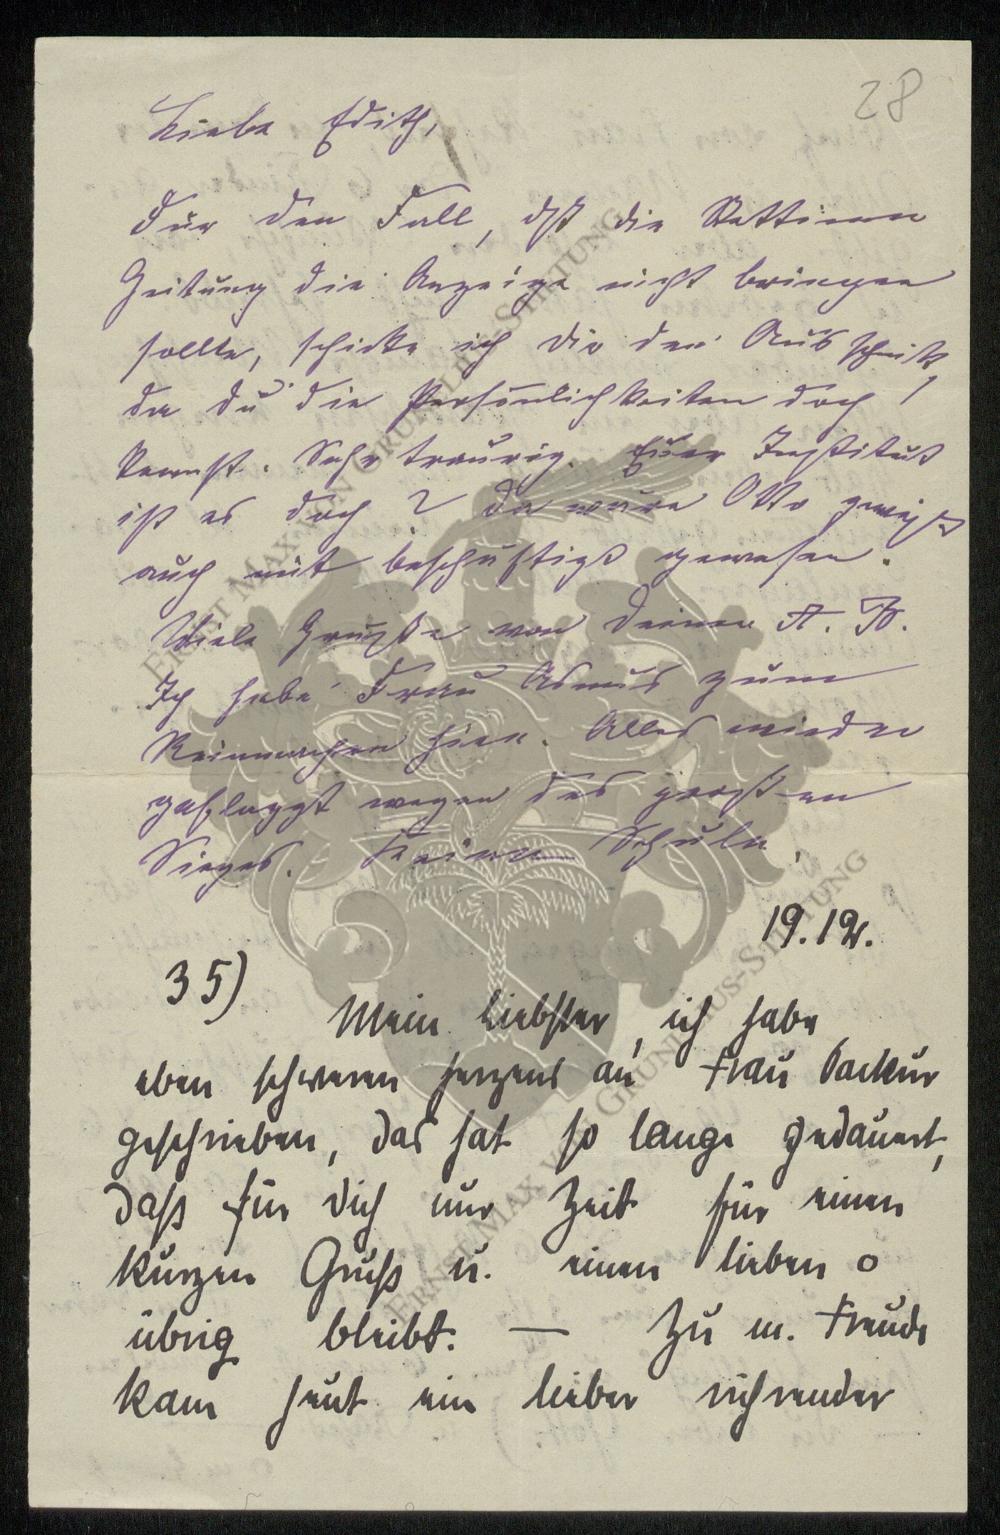 28
Liebe Edith,
Für den Fall, daß die Stettiner
Zeitung die Anzeige nicht bringen
sollte, schicke ich Dir den Ausschnitt,
da Du die Persönlichkeiten doch
kennst. Sehr traurig. Euer Institut
ist es doch? Da wäre Otto gewiß
auch mit beschäftigt gewesen.
Viele Grüße von Deiner A. B.
Ich habe Frau Asmus zum
Reinmachen hier. Alles wieder
geflaggt wegen des großen
Sieges. Keine Schule.
19.12.
35)
Mein liebster, ich habe
eben schweren Herzens an Frau Backur
geschrieben, das hat so lange gedauert,
daß für Dich nur Zeit für einen
kurzen Gruß u. einen lieben o
übrig bleibt. — Zu m. Freude
kam heut ein lieber rührender
ERNST MAX VON GRUNELIUS-STIFTUNG
ERNST MAX VON GRUNELIUS-STIFTUNG